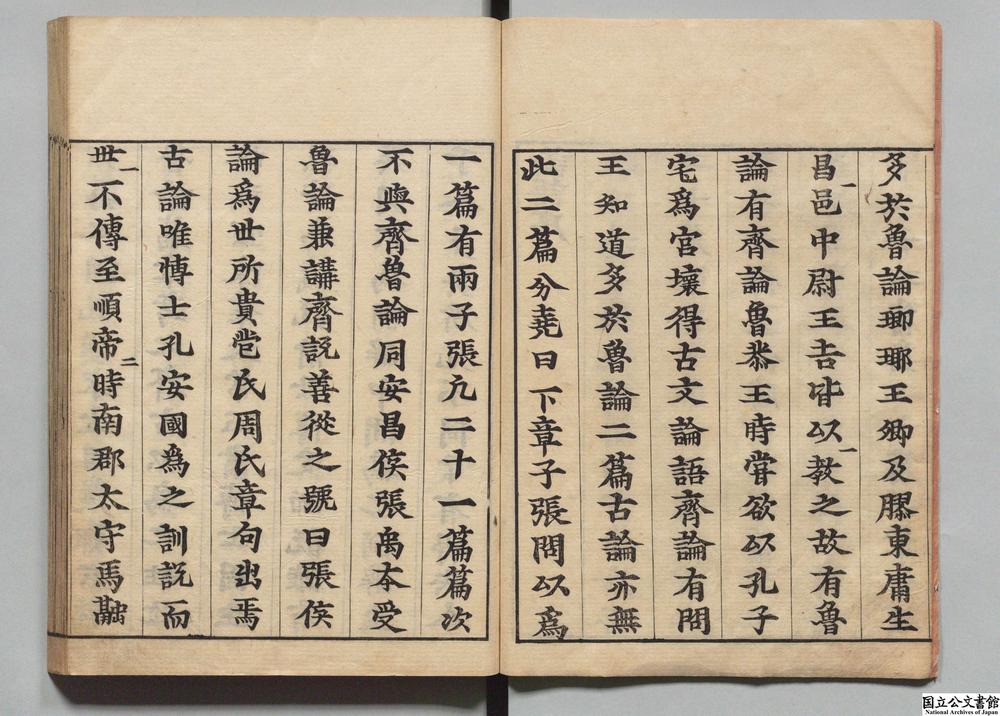 多於魯論瑯琊王卿及膠東庸生
昌邑中尉王吉皆以教之故有魯
論有齊論魯恭王時嘗欲以孔子
宅爲宮壞得古文論語齊論有問
王知道多於魯論二篇古論亦無
此二篇分堯曰下章子張問以爲
一篇有兩子張凡二十一篇篇次
不與齊魯論同安昌侯張禹本受
魯論兼講齊説善從之號曰張侯
論爲世所貴苞氏周氏章句出焉
古論唯博士孔安國爲之訓説而
世一不傳至順帝二時南郡太守馬融
国立公文書館
National Archives of Japan